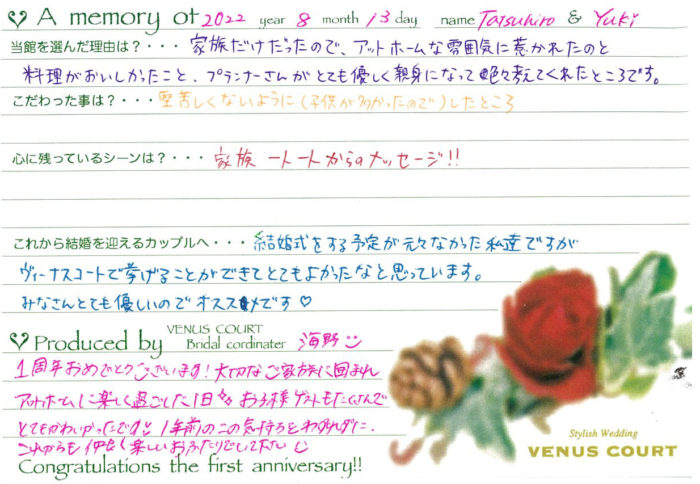 A memory of 2022 year 8 month 13 day name Tatsuhiro & Yuki
当館を選んだ理由は？・・・家族だけだったので、アットホームな雰囲気に惹かれたのと
料理がおいしかったこと、プランナーさんがとても優しく親身になって色々考えてくれたところです。
こだわった事は？・・・堅苦しくないように(子供が多かったので)したところ
心に残っているシーンは？・・・家族一人一人からのメッセージ!!
これから結婚を迎えるカップルへ・・・結婚式をする予定が元々なかった私達ですが
ヴィーナスコートで挙げることができてとてもよかったなと思っています。
みなさんとても優しいのでオススメです♡
Produced by VENUS COURT Bridal cordinater 海野
1周年おめでとうございます！大切なご家族に囲まれ
アットホームに楽しく過ごした1日 お子様ゲストもたくさんで
とてもかわいかったです! 1年前のこの気持ちをわすれずに、
これからも仲良く楽しいおふたりでいて下さい
Congratulations the first anniversary!!
Stylish Wedding
VENUS COURT